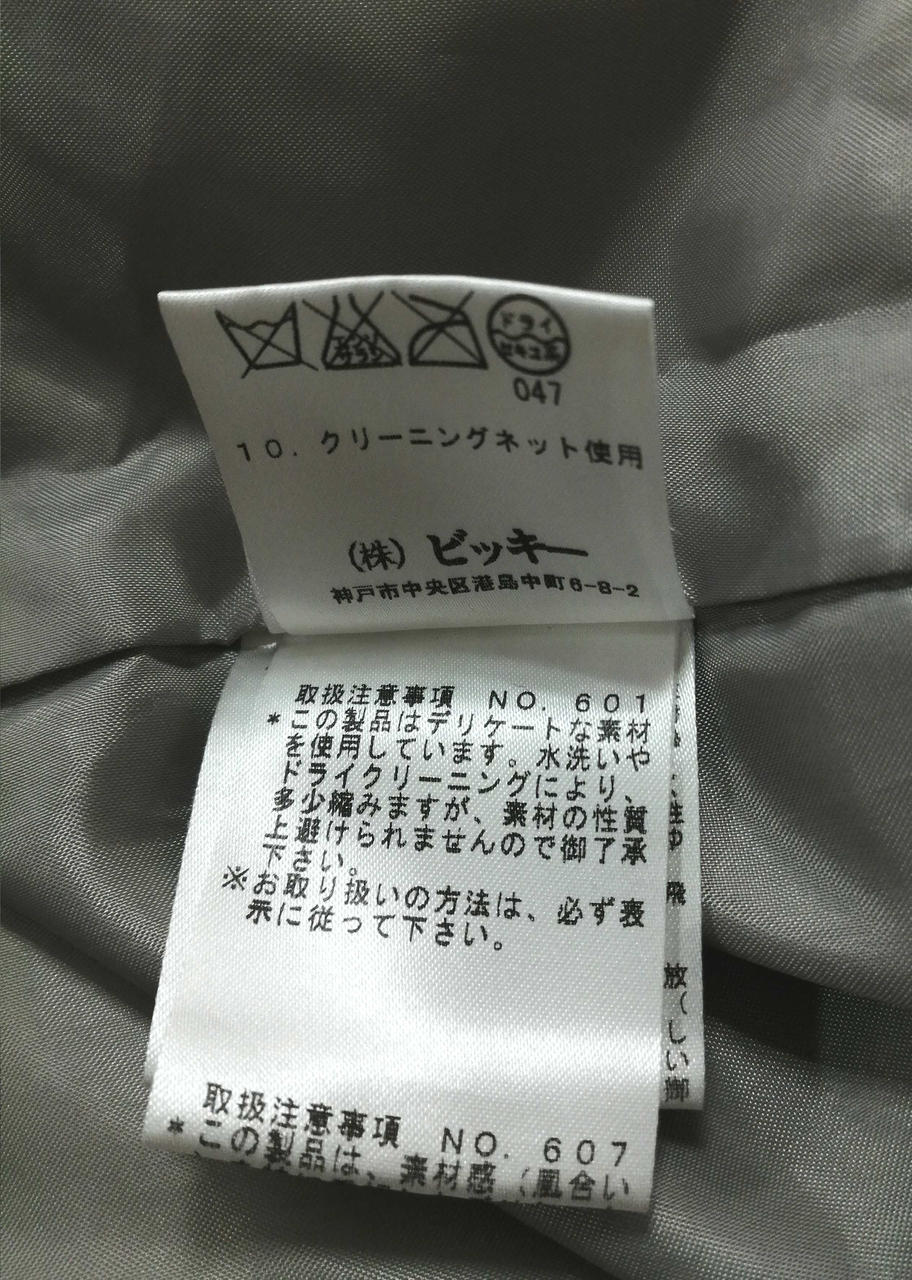 ドライ
セキユ系
047
10. クリーニングネット使用
(株) ビッキー
神戸市中央区港島中町6-8-2
取扱注意事項 NO. 601
*この製品はデリケートな素材
を使用しています。水洗いや
ドライクリーニングにより、
多少縮みますが、素材の性質
上避けられませんので御了承
下さい。
※お取り扱いの方法は、必ず表
示に従って下さい。
取扱注意事項 NO. 607
*この製品は、素材感(風合い